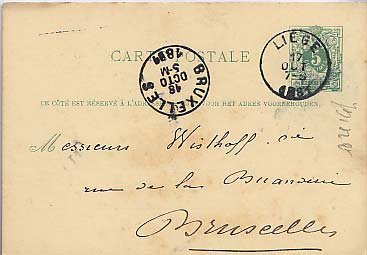 CARTE POSTALE
LIEGE
17
OCT
1881
BRUXELLES
18
OCTO
5-M
1881
5
CE CÔTÉ EST RÉSERVÉ À L'ADRESSE. VOOR HET ADRES VOORBEHOUDEN.
Messieurs Wisthoff & cie
rue de la Buanderie
Bruxelles